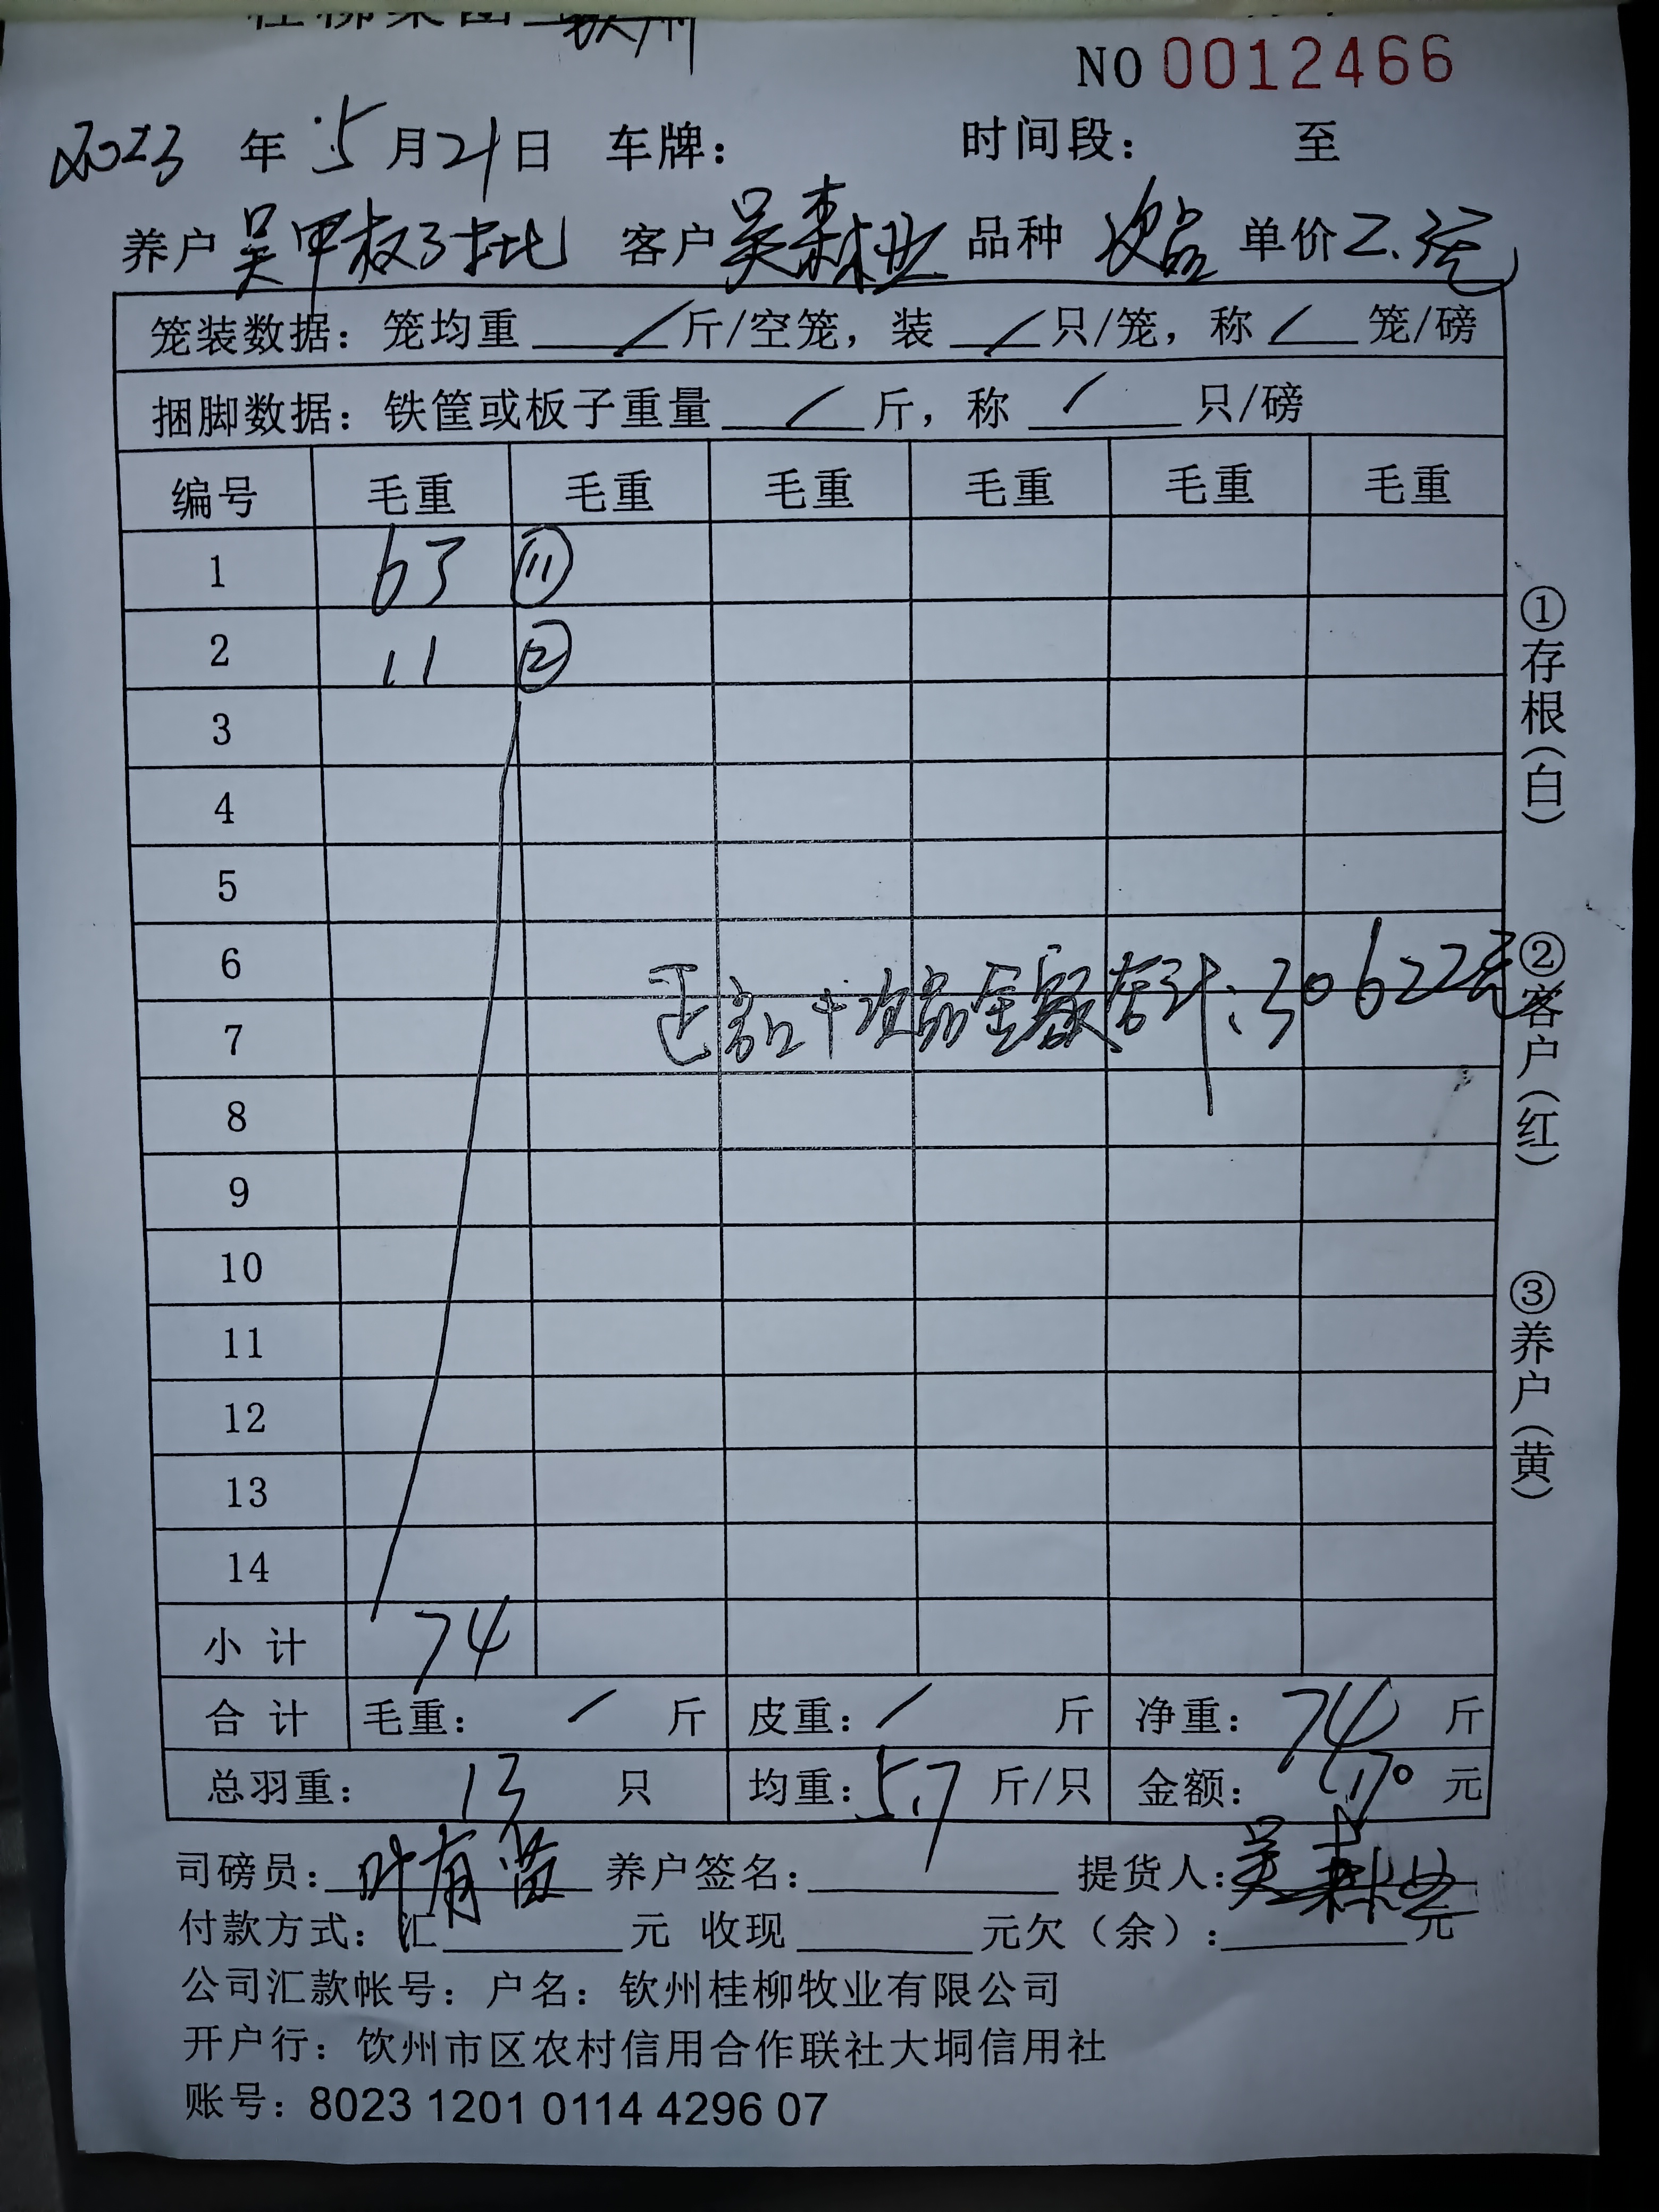 桂柳集团 钦州
NO 0012466
2023 年 5 月 21 日 车牌： 时间段： 至
养户 吴甲板3批 客户 吴森业 品种 次品 单价 2.元
笼装数据：笼均重 / 斤/空笼，装 / 只/笼，称 / 笼/磅
捆脚数据：铁筐或板子重量 / 斤，称 / 只/磅
编号 毛重 毛重 毛重 毛重 毛重 毛重
1 63 ⑪
2 11 ②
3
4
5
6
正品+次品金额合计：30622元
7
8
9
10
11
12
13
14
小 计 74
合 计 毛重： / 斤 皮重：/ 斤 净重： 74 斤
总羽重： 13 只 均重：5.7 斤/只 金额： 元
司磅员： 叶有 养户签名： 提货人：吴森业
付款方式：汇 元 收现 元欠（余）： 元
公司汇款帐号：户名：钦州桂柳牧业有限公司
开户行：饮州市区农村信用合作联社大垌信用社
账号：8023 1201 0114 4296 07
①存根（白）
②客户（红）
③养户（黄）